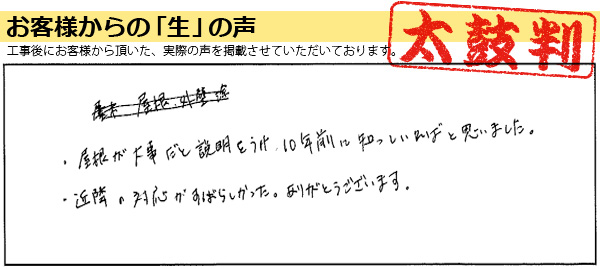 お客様からの「生」の声
工事後にお客様から頂いた、実際の声を掲載させていただいております。
太鼓判
屋根 外壁
・屋根が大事だと説明をうけ、10年前に知っていればと思いました。
・近隣の対応がすばらしかった。ありがとうございます。